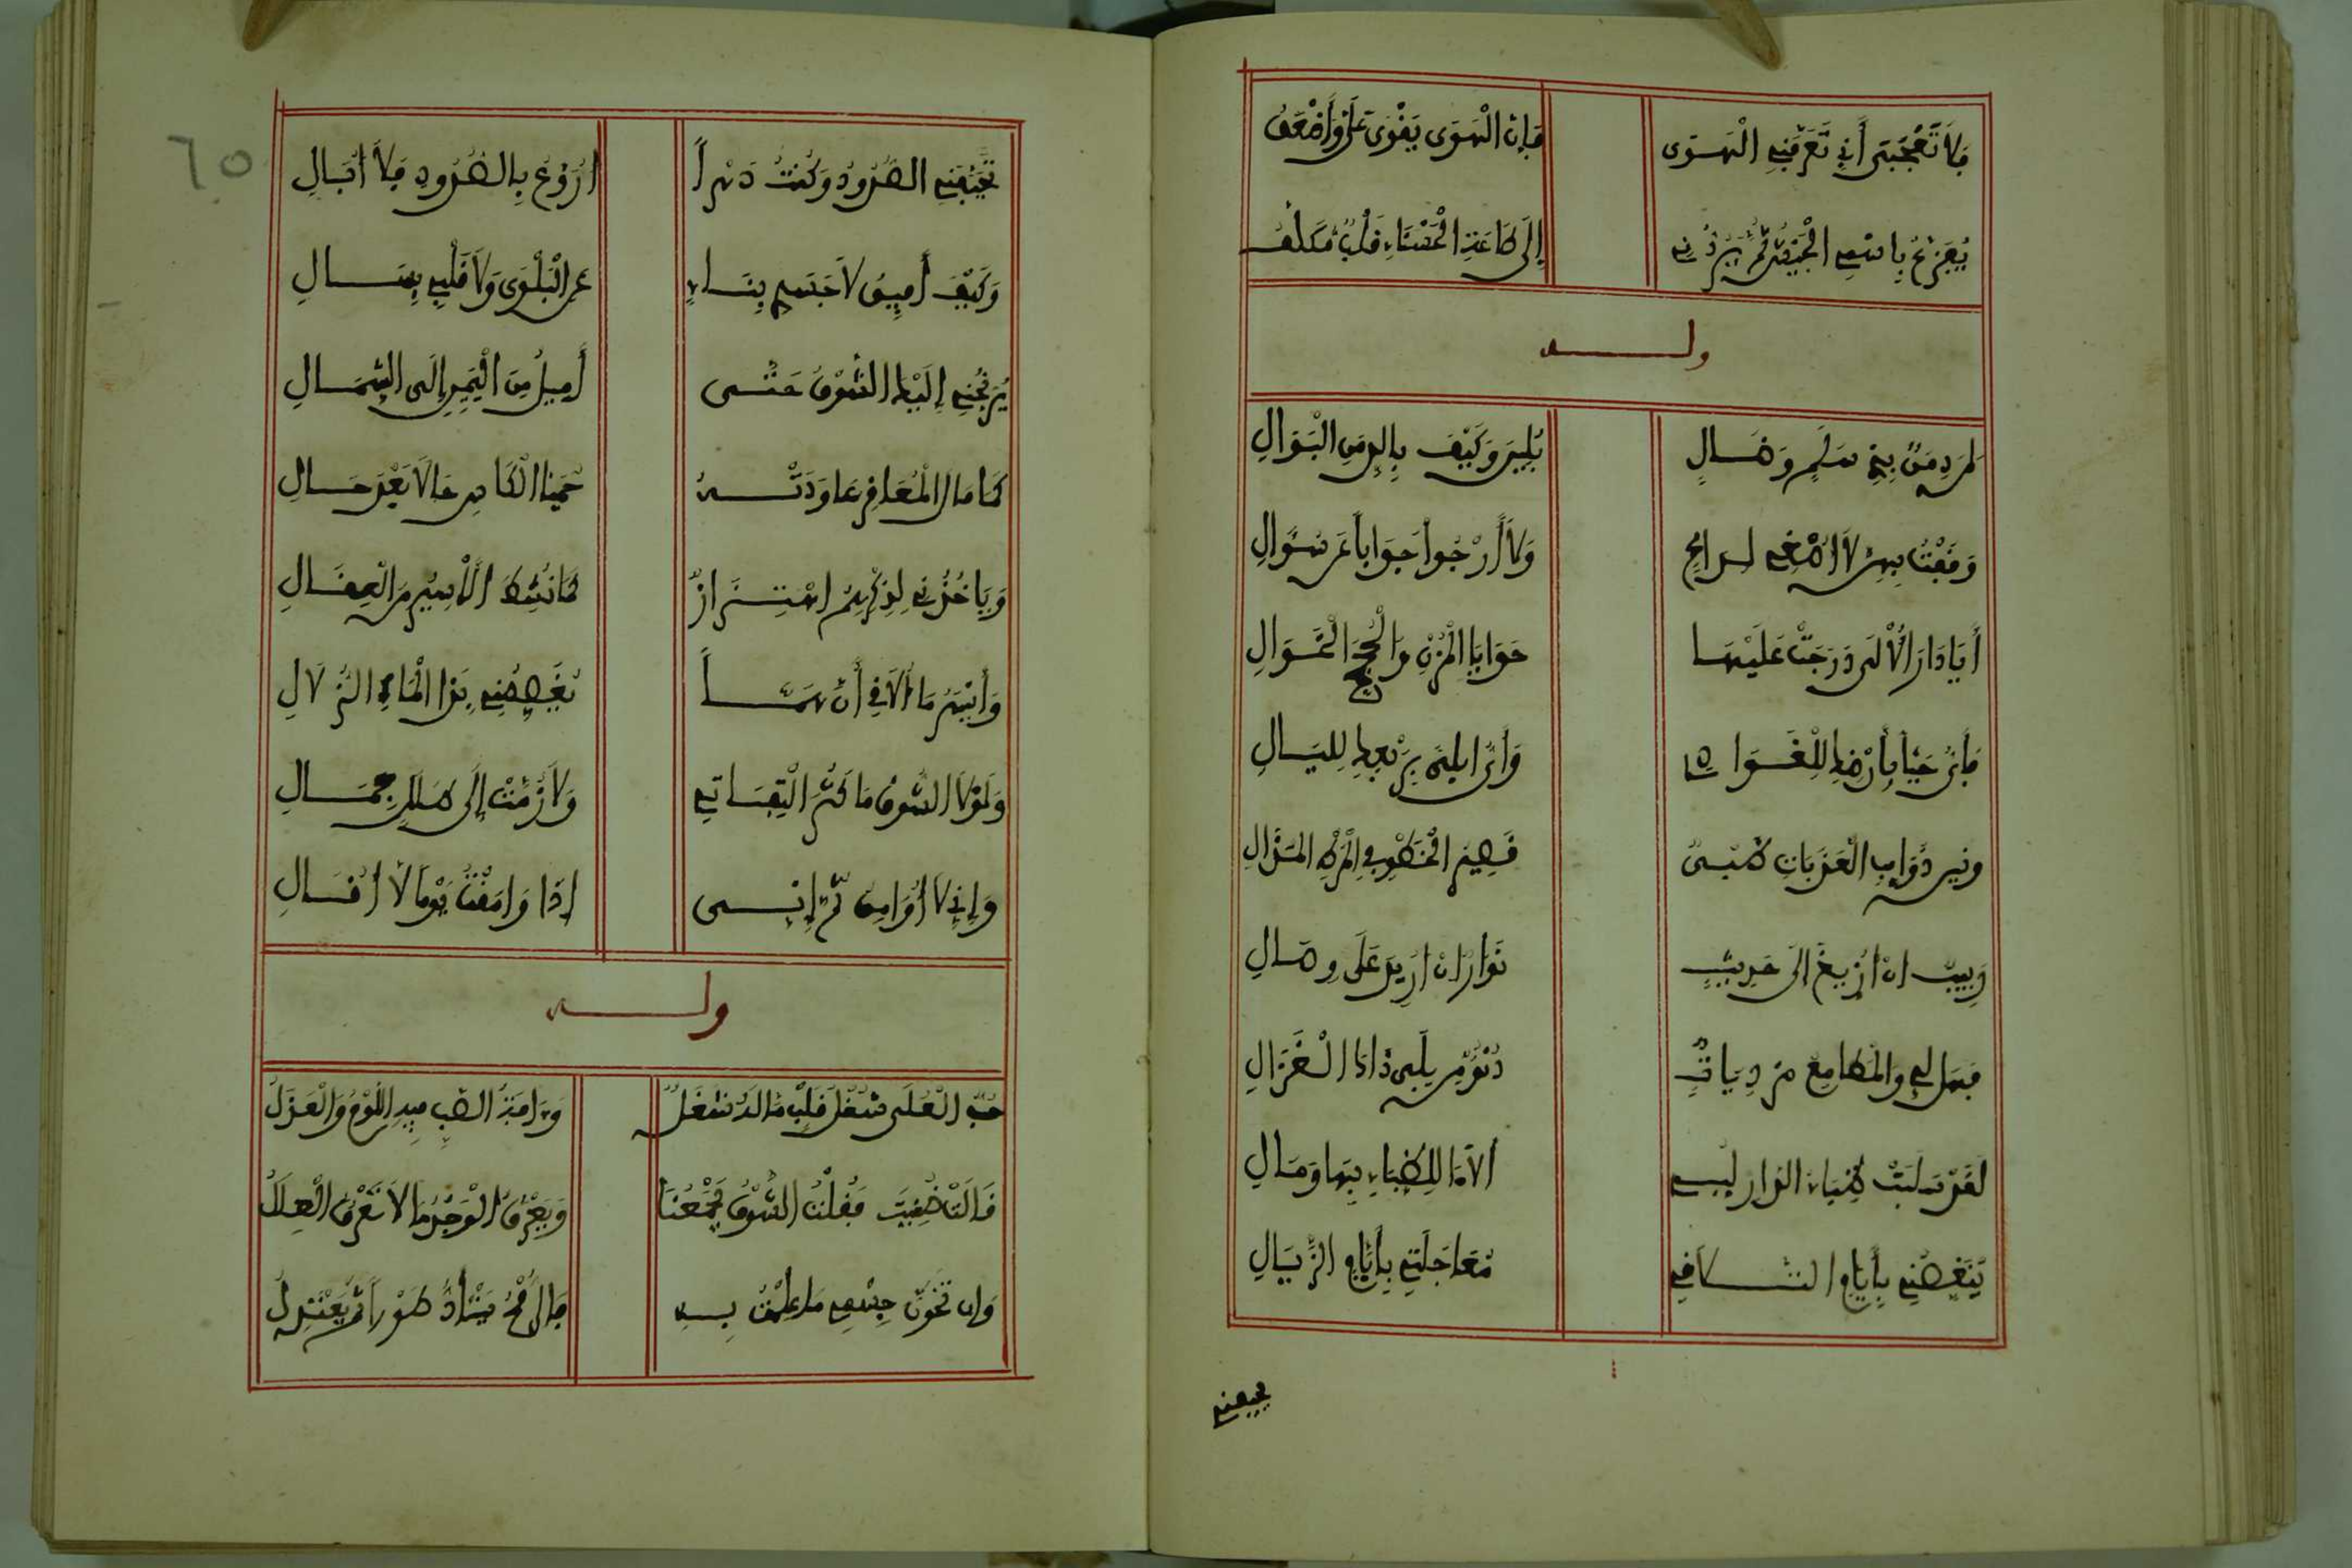 فلا تعجبي أني تعرقني الهوى فإن الهوى يقوى علي وأضعف
إلى طاعة الحسناء قلب مكلف
وله
لمن دمن بذي سلم وضال بلين وكيف بالدمن البوالي
وقفت بهن لا أصغي لداع ولا أرجو جوابا عن سؤال
أيا دار الألى درجت عليها حوايا المزن والحجج الخوالي
فأي حيا بأرضك للغوادي وأي بلى بربعك لليالي
وبين ذوائب العقدات ظبي قصير الخطو في المرط المذال
ربيب إن أريغ إلى حديث نوار إن أريد على وصال
فهل لي والمطامع مرديات دنو من لمى ذاك الغزال
لقد سلبت ظباء الدار لبي ألا ما للظباء بها وما لي
تنغصني بأيام التلاقي معاجلتي بأيام الزيال
تحيفني
تحيفني الصدود وكنت دهرا أروع بالصدود فلا أبالي
وكيف أفيق لا جسمي بناء عن البلوى ولا قلبي بسال
يرنحني إليك الشوق حتى أميل من اليمين إلى الشمال
كما مال المعاقر عاودته حميا الكاس حالا بعد حال
ويأخذني لذكركم اهتزاز كما نشط الأسير من العقال
وأيسر ما ألاقي أن هما يغصصني بذا الماء الزلال
ولولا الشوق ما كثر التفاتي ولا زمت إلى طلل جمالي
وإني لا أوامق ثم إني إذا وامقت يوما لا أقالي
وله
حب العلى شغل قلب ما له شغل وآفة الصب فيه اللوم والعذل
قالت ضنيت فقلت الشوق يجمعنا ويعرف الوجد ما لا تعرف العلل
وإن تحول جسمي ما علمت به فالرمح ينآد طورا ثم يعتدل
٦٥